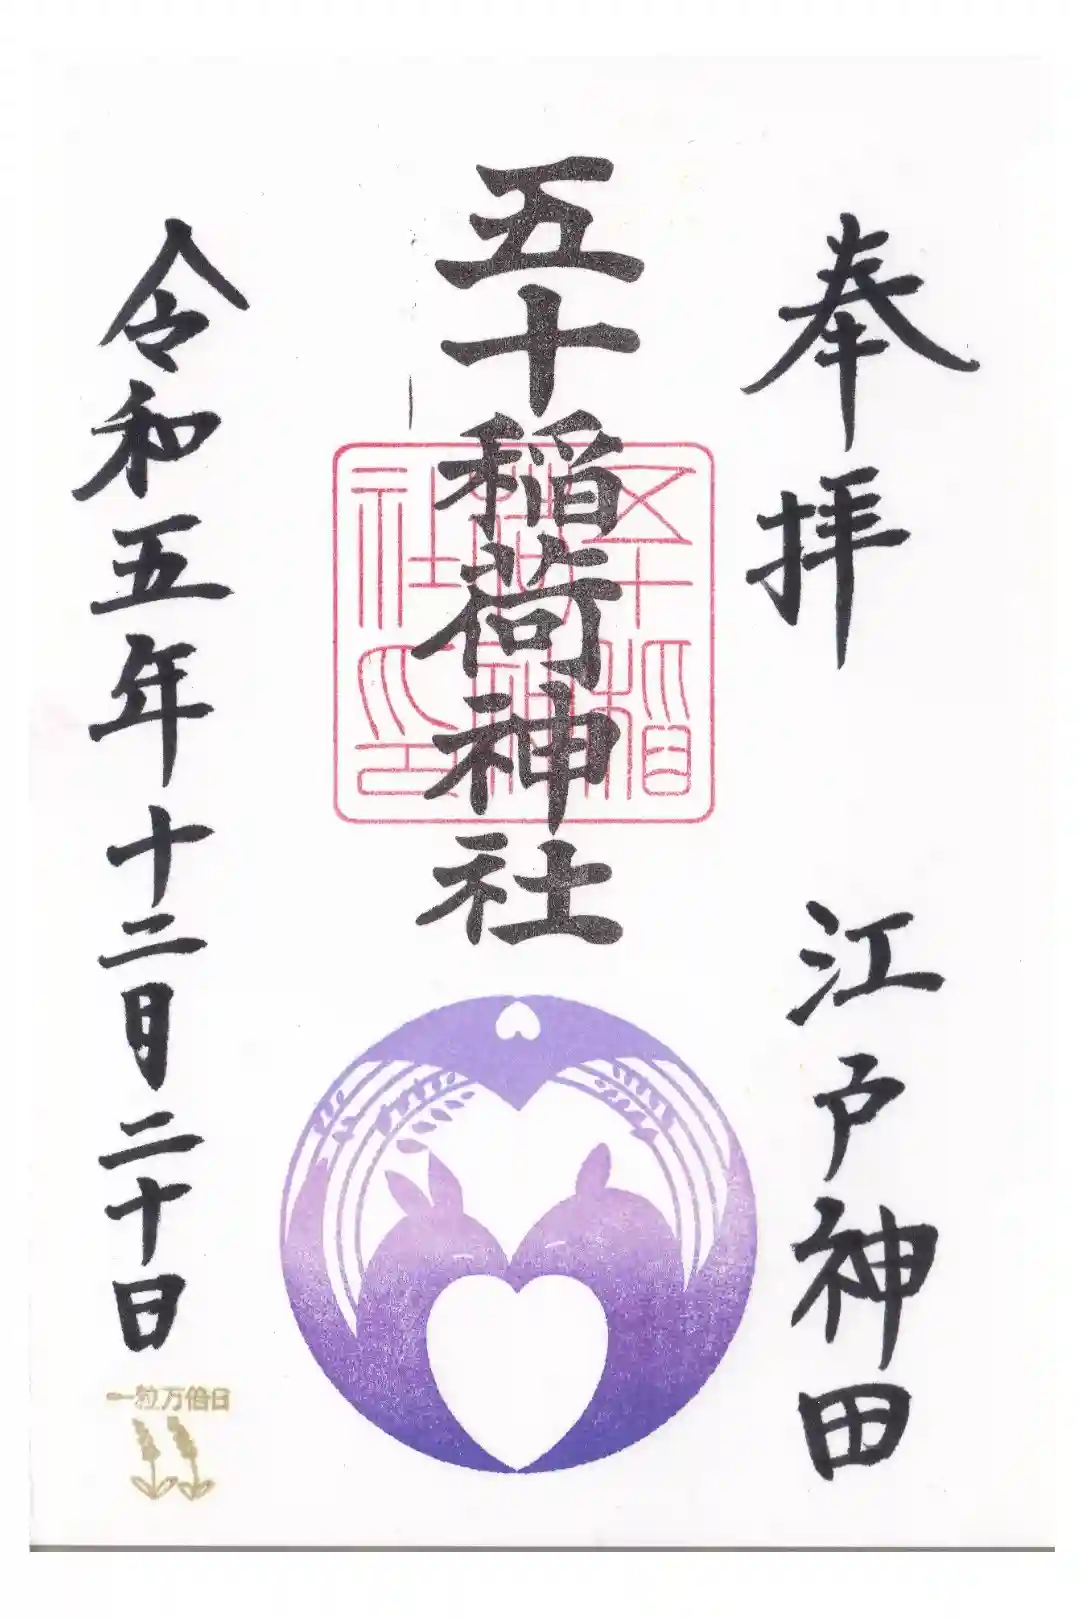 奉拝
江戸神田
五十稲荷神社
五十稲荷神社印
令和五年十二月二十日
一粒万倍日